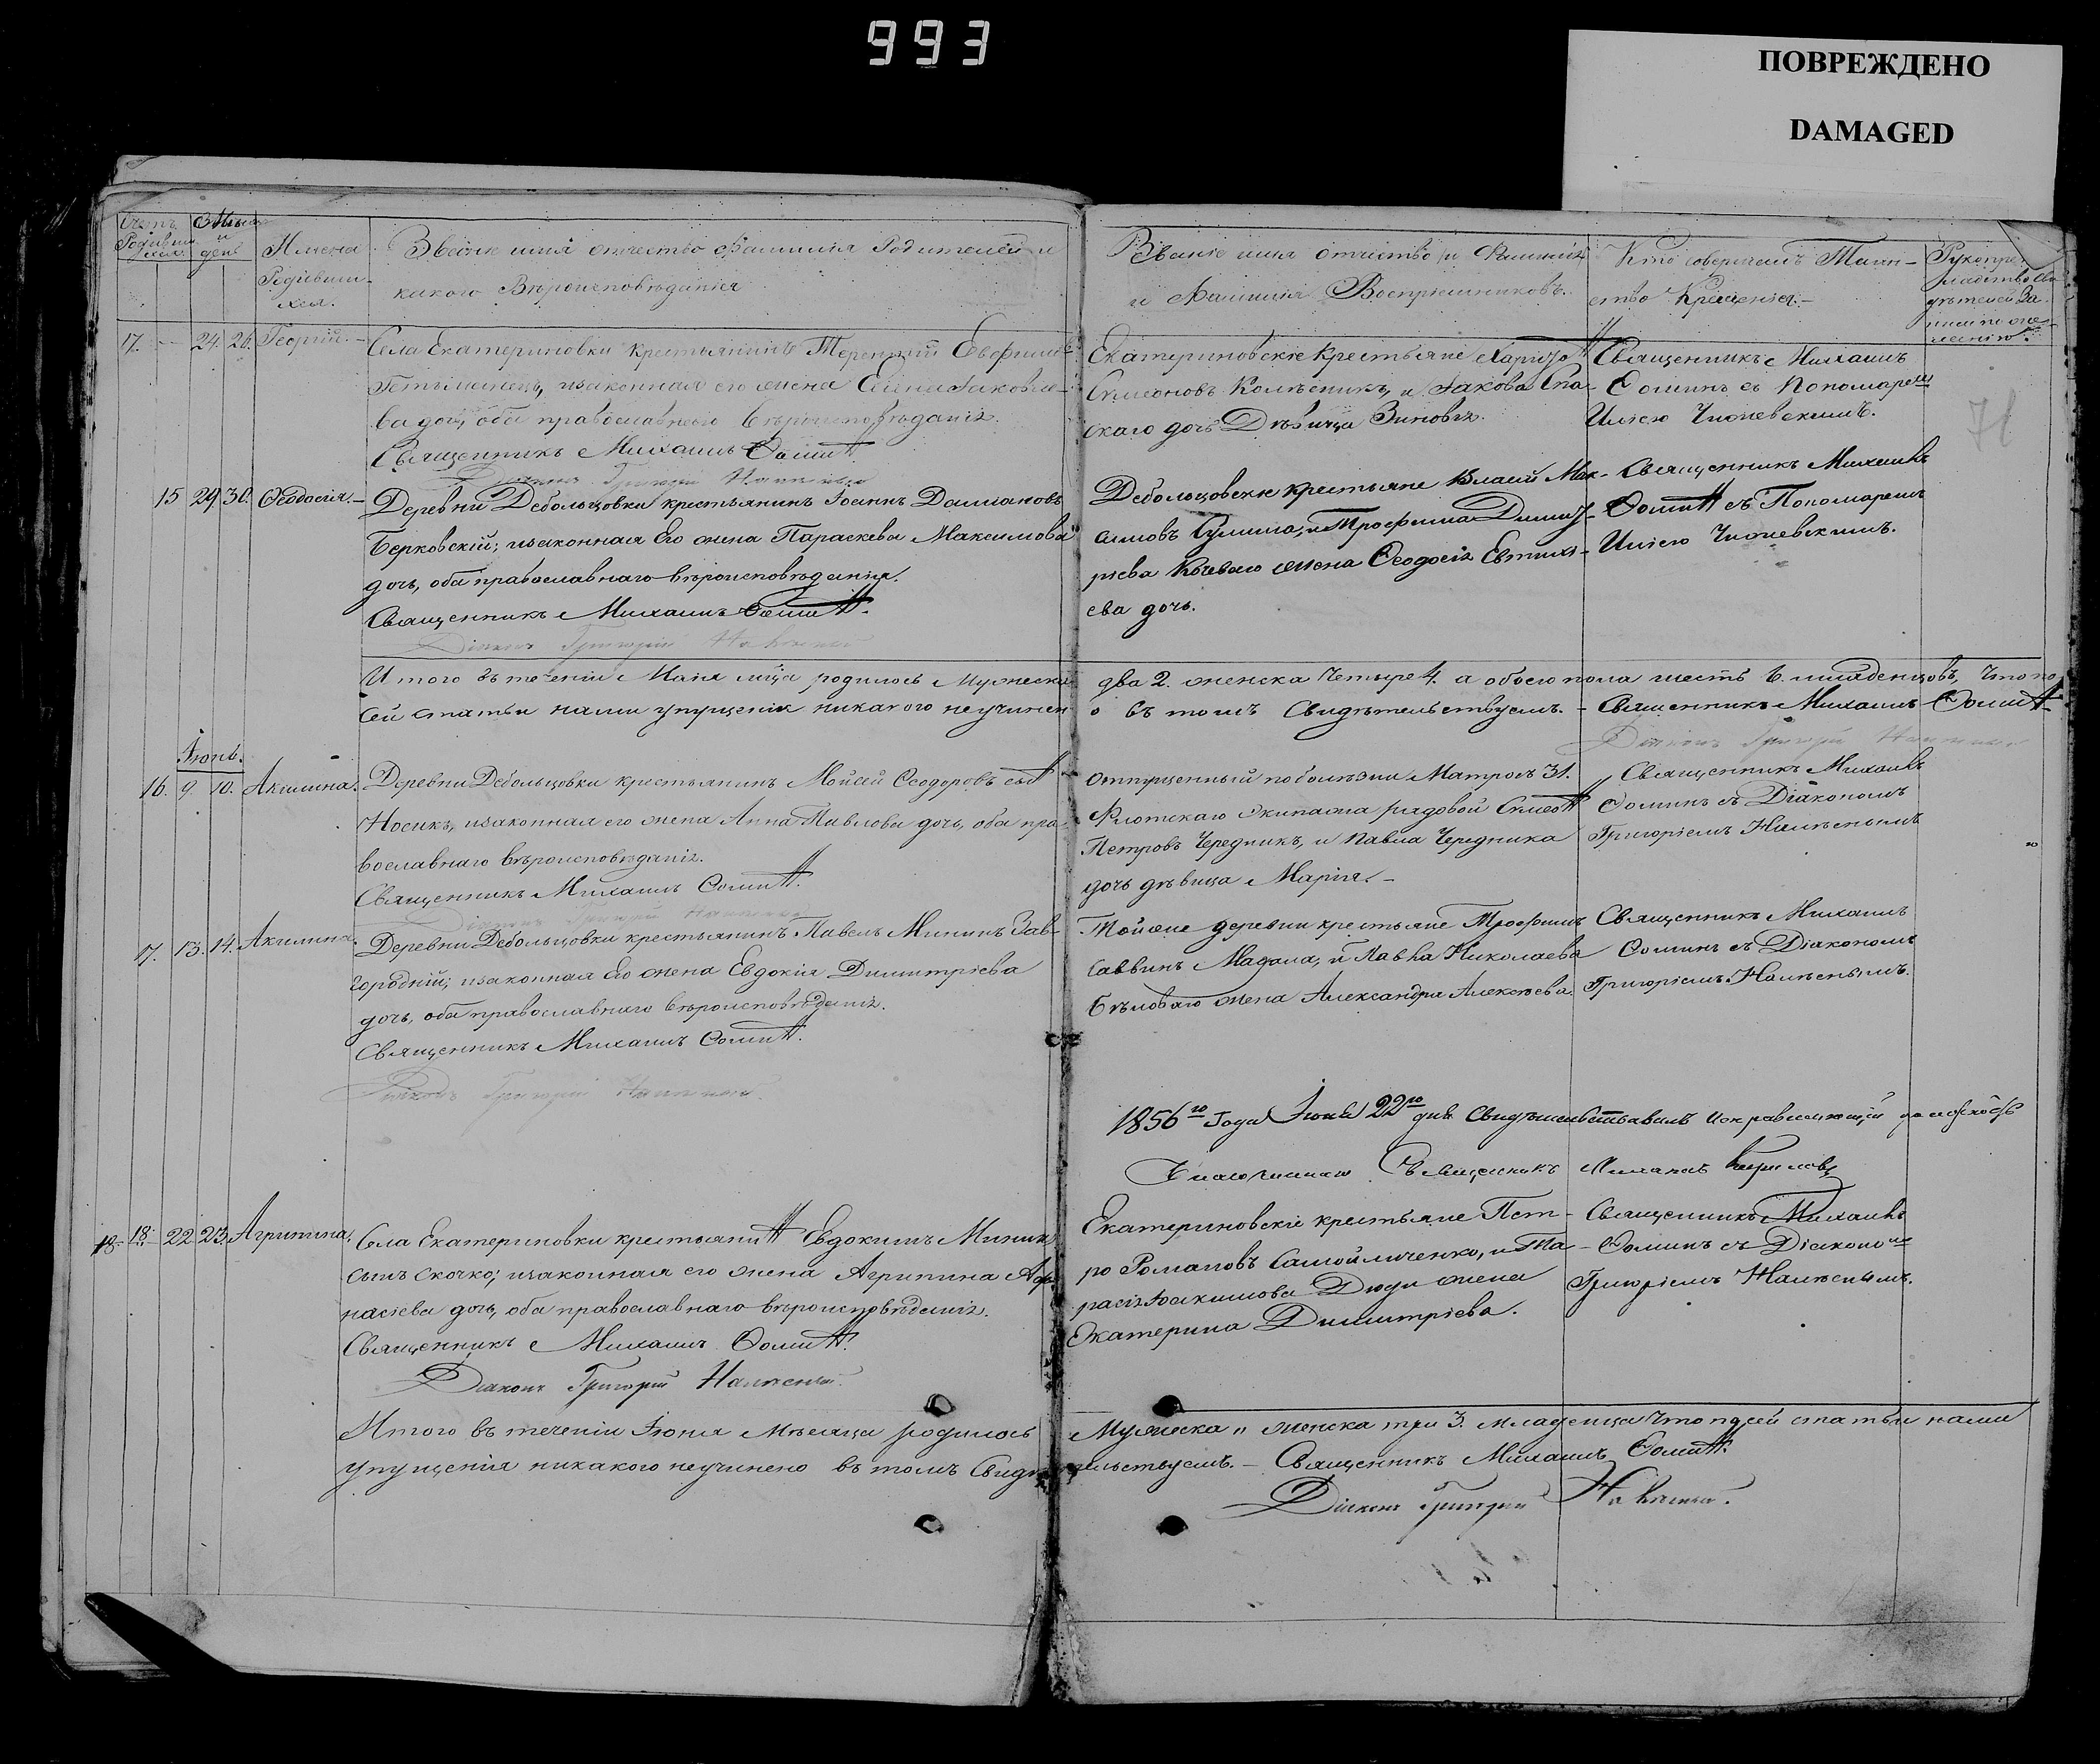 993
ПОВРЕЖДЕНО
DAMAGED
Счетъ Родивших
и день
Имена Родивши-хся.
Званіе имя отчество Фамилія Родителей и
какого Вѣроисповѣданія
Званіе имя отчество и Фамилія
и Фамилія Воспріемниковъ.
Кто совершалъ Таин-
ство Крещенія.-
17. - 24. 26. Георгій.-
Села Екатериновки крестьянинъ Терентій
законная его жена Іаковле-
ва дочь, оба православнаго вѣроисповѣданія.
Священникъ Михаилъ Ѳоминъ
Екатериновскіе крестьяне Харитонъ
Симеоновъ Колѣсникъ, и Іакова Спа-
скаго дочь Дѣвица Зиновія.
Священникъ Михаилъ
Ѳоминъ съ Пономаремъ
Иліею Чижевскимъ.
71
15 29 30. Ѳеодосія.-
Деревни Дебольцовки крестьянинъ Іоаннъ Даміановъ
Берковскій; и законная Его жена Параскева Максимова
дочь, оба православнаго вѣроисповѣданія.
Священникъ Михаилъ Ѳоминъ.
Діаконъ Григорій
Дебольцовскіе крестьяне Власій Мак-
симовъ Сулима, и Трофима Димит-
ріева жена Ѳеодосія Евтихі-
ева дочь.
Священникъ Михаилъ
Ѳоминъ съ Пономаремъ
Иліею Чижевскимъ.
Итого въ теченіи Маія мѣца родилось Мужеска два 2. женска четыре 4. а обоего пола шесть 6. младенцовъ, что по
сей статьи нами упущенія никакого неучинено въ томъ Свидѣтельствуемъ. - Священникъ Михаилъ Ѳоминъ
Діаконъ Григорій
Іюнь.
16. 9. 10. Акилина.
Деревни Дебольцовки крестьянинъ Мойсей Ѳеодоровъ сынъ
Носикъ, и законная его жена Анна Павлова дочь, оба пра-
вославнаго вѣроисповѣданія.
Священникъ Михаилъ Ѳоминъ.
отпущенный по болѣзни Матрозъ 31.
Флотскаго Экипажа рядовой Симеонъ
Петровъ Чередникъ, и Павла Чередника
дочь дѣвица Марія.-
Священникъ Михаилъ
Ѳоминъ съ Діакономъ
Григоріемъ
17. 13. 14. Акилина.
Деревни Дебольцовки крестьянинъ Павелъ Мининъ Зав-
городній; и законная Его жена Евдокія Димитріева
дочь, оба православнаго вѣроисповѣданія.
Священникъ Михаилъ Ѳоминъ.
Діаконъ Григорій
Тойже деревни крестьяне Трофимъ
Саввинъ и Павла Николаева
Бѣловаго жена Александра Алексѣева.
Священникъ Михаилъ
Ѳоминъ съ Діакономъ
Григоріемъ
1856го Года Іюня 22го дня Свидѣтельствовалъ исправляющій должность
Благочиннаго Священникъ
18. 22. 23. Агрипина.
Села Екатериновки крестьянинъ Евдокимъ Мининъ
сынъ Скочко; и законная его жена Агрипина Афа-
насіева дочь, оба православнаго вѣроисповѣданія.
Священникъ Михаилъ Ѳоминъ.
Діаконъ Григорій
Екатериновскіе крестьяне Пет-
ро Романовъ Самойличенко, и
жена
Екатерина Димитріева.
Священникъ Михаилъ
Ѳоминъ съ Діакономъ
Григоріемъ
Итого въ теченіи Іюня мѣсяца родилось Мужеска " женска три 3. младенца что по сей статьи нами
упущенія никакого неучинено въ томъ Свидѣтельствуемъ.- Священникъ Михаилъ Ѳоминъ.
Діаконъ Григорій